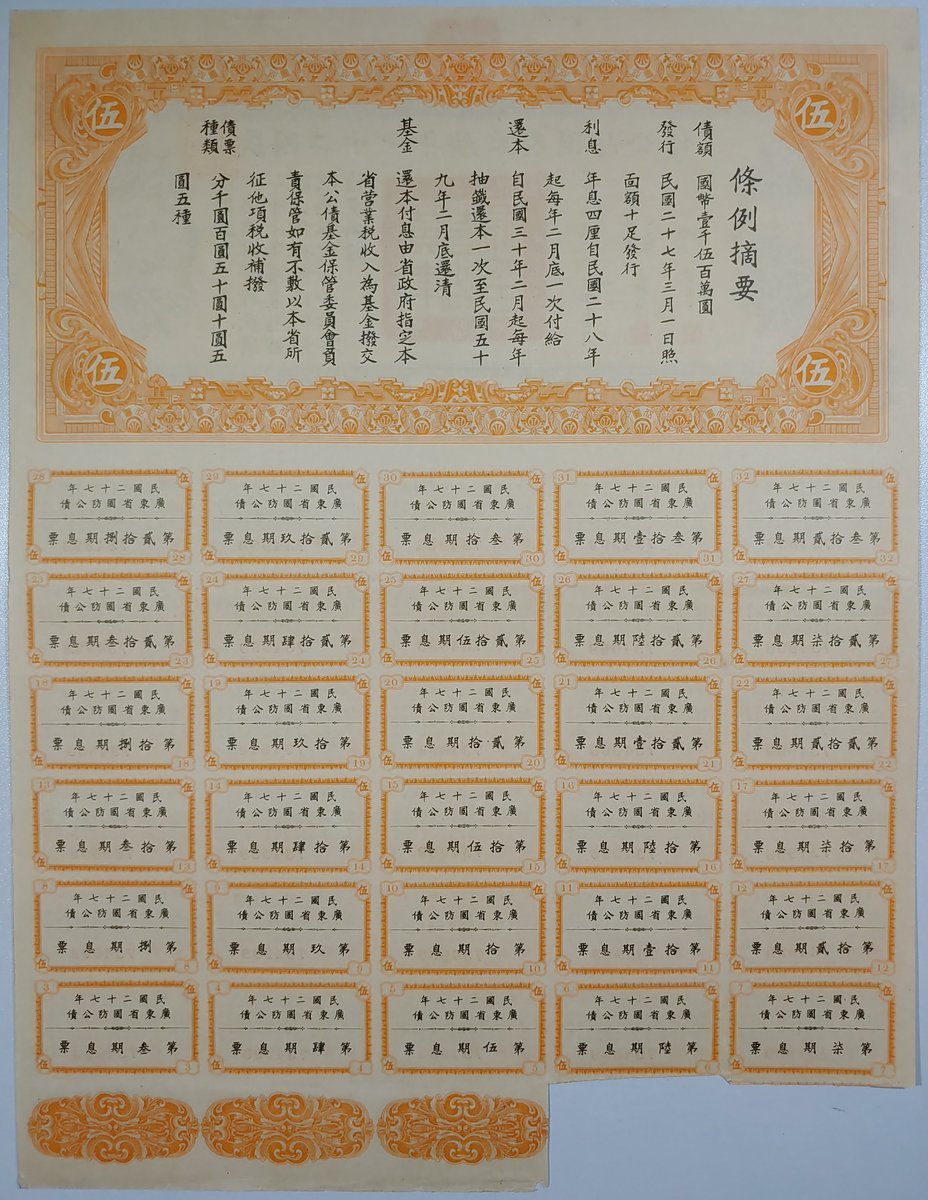 伍
伍
條例摘要
債額 國幣壹千伍百萬圓
發行 民國二十七年三月一日照
面額十足發行
利息 年息四厘自民國二十八年
起每年二月底一次付給
還本 自民國三十年二月起每年
抽籤還本一次至民國五十
九年二月底還清
基金 還本付息由省政府指定本
省營業稅收入為基金撥交
本公債基金保管委員會負
責保管如有不敷以本省所
征他項稅收補撥
債票種類 分千圓百圓五十圓十圓五
圓五種
伍
伍
28 伍
民國二十七年
廣東省國防公債
第貳拾捌期息票
伍 28
29 伍
民國二十七年
廣東省國防公債
第貳拾玖期息票
伍 29
30 伍
民國二十七年
廣東省國防公債
第叁拾期息票
伍 30
31 伍
民國二十七年
廣東省國防公債
第叁拾壹期息票
伍 31
32 伍
民國二十七年
廣東省國防公債
第叁拾貳期息票
伍 32
23 伍
民國二十七年
廣東省國防公債
第貳拾叁期息票
伍 23
24 伍
民國二十七年
廣東省國防公債
第貳拾肆期息票
伍 24
25 伍
民國二十七年
廣東省國防公債
第貳拾伍期息票
伍 25
26 伍
民國二十七年
廣東省國防公債
第貳拾陸期息票
伍 26
27 伍
民國二十七年
廣東省國防公債
第貳拾柒期息票
伍 27
18 伍
民國二十七年
廣東省國防公債
第拾捌期息票
伍 18
19 伍
民國二十七年
廣東省國防公債
第拾玖期息票
伍 19
20 伍
民國二十七年
廣東省國防公債
第貳拾期息票
伍 20
21 伍
民國二十七年
廣東省國防公債
第貳拾壹期息票
伍 21
22 伍
民國二十七年
廣東省國防公債
第貳拾貳期息票
伍 22
13 伍
民國二十七年
廣東省國防公債
第拾叁期息票
伍 13
14 伍
民國二十七年
廣東省國防公債
第拾肆期息票
伍 14
15 伍
民國二十七年
廣東省國防公債
第拾伍期息票
伍 15
16 伍
民國二十七年
廣東省國防公債
第拾陸期息票
伍 16
17 伍
民國二十七年
廣東省國防公債
第拾柒期息票
伍 17
8 伍
民國二十七年
廣東省國防公債
第捌期息票
伍 8
9 伍
民國二十七年
廣東省國防公債
第玖期息票
伍 9
10 伍
民國二十七年
廣東省國防公債
第拾期息票
伍 10
11 伍
民國二十七年
廣東省國防公債
第拾壹期息票
伍 11
12 伍
民國二十七年
廣東省國防公債
第拾貳期息票
伍 12
3 伍
民國二十七年
廣東省國防公債
第叁期息票
伍 3
4 伍
民國二十七年
廣東省國防公債
第肆期息票
伍 4
5 伍
民國二十七年
廣東省國防公債
第伍期息票
伍 5
6 伍
民國二十七年
廣東省國防公債
第陸期息票
伍 6
7 伍
民國二十七年
廣東省國防公債
第柒期息票
伍 7